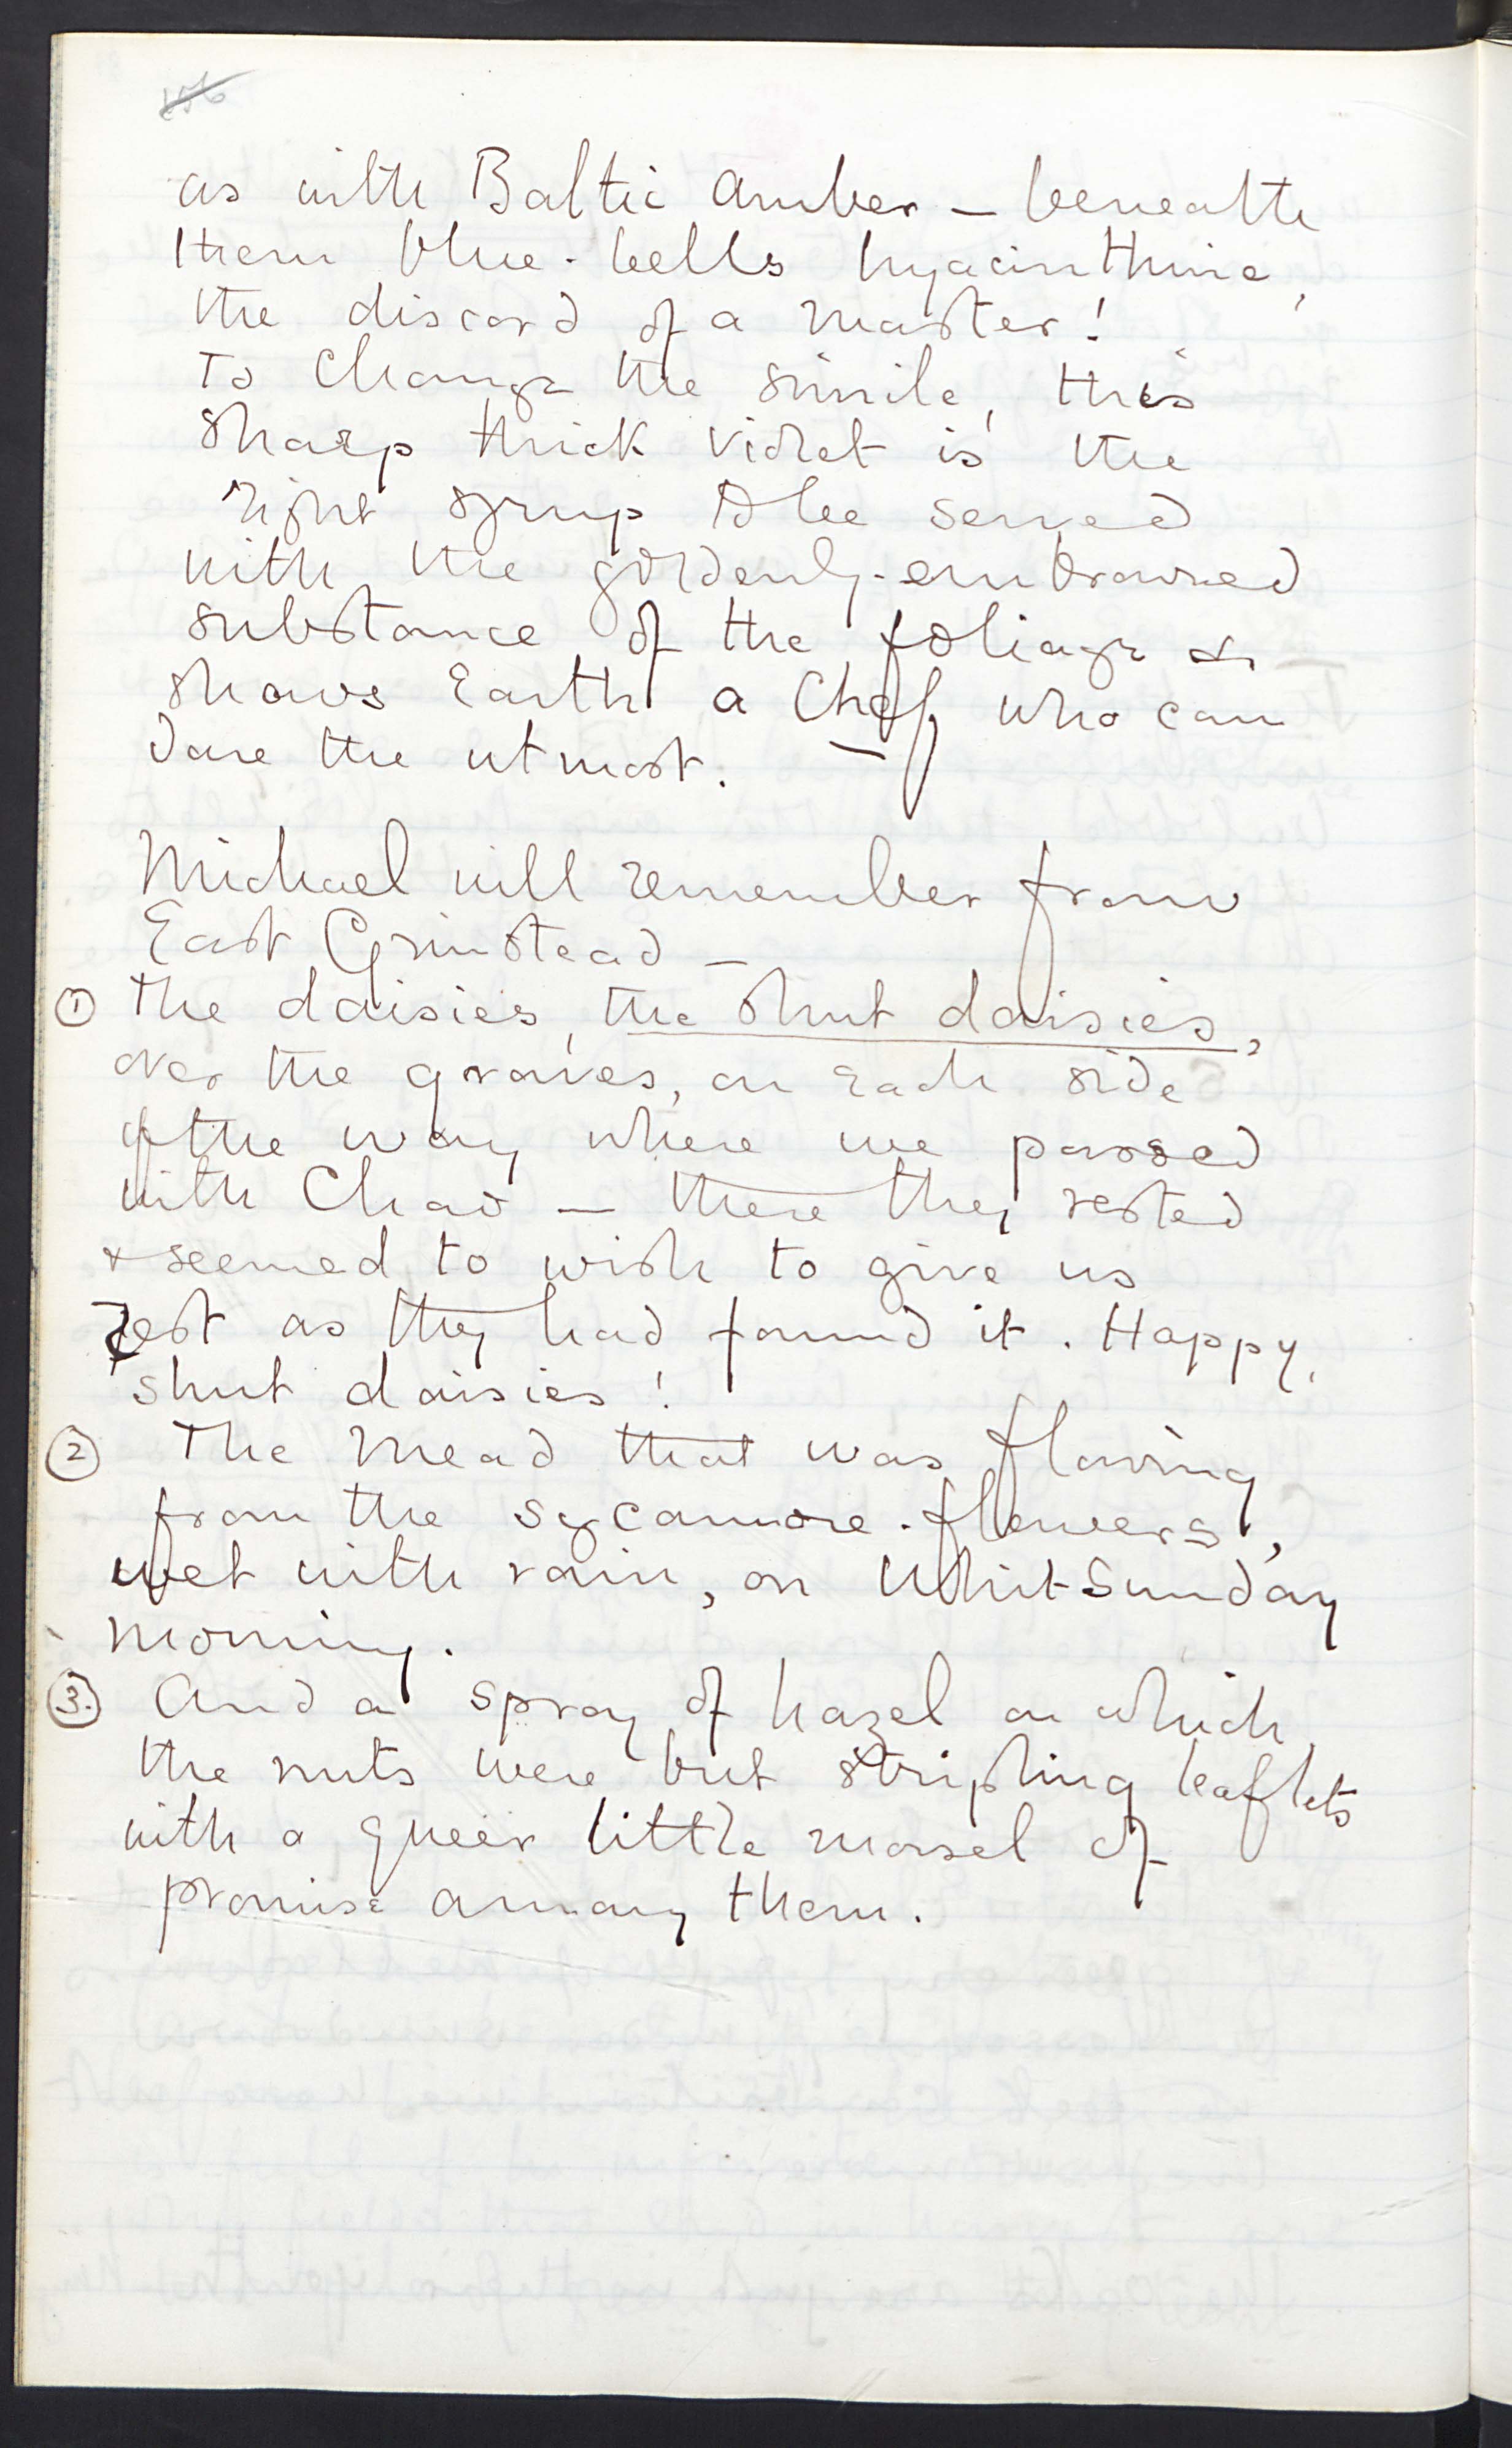 as with Baltic Amber — beneath
them blue-bells hyacinthine,
the discord of a master!
To Change the simile, this
sharp thick violet is the
right syrup to be served
with the goldenly-embrowned
substance of the foliage &
shows Earth a Chef who can
dare the utmost.
Michael will remember from
East Grinstead —
① The daisies, the shut daisies,
over the graves, on each side
of the way where we passed
with Chow — there they rested
& seemed to wish to give us
rest as they had found it. Happy,
shut daisies!
② The Mead that was flowing
from the sycamore-flowers,
wet with rain, on Whit-Sunday
morning.
③ And a spray of hazel on which
the nuts were but stripling leaflets
with a queer little morsel of
promise among them.